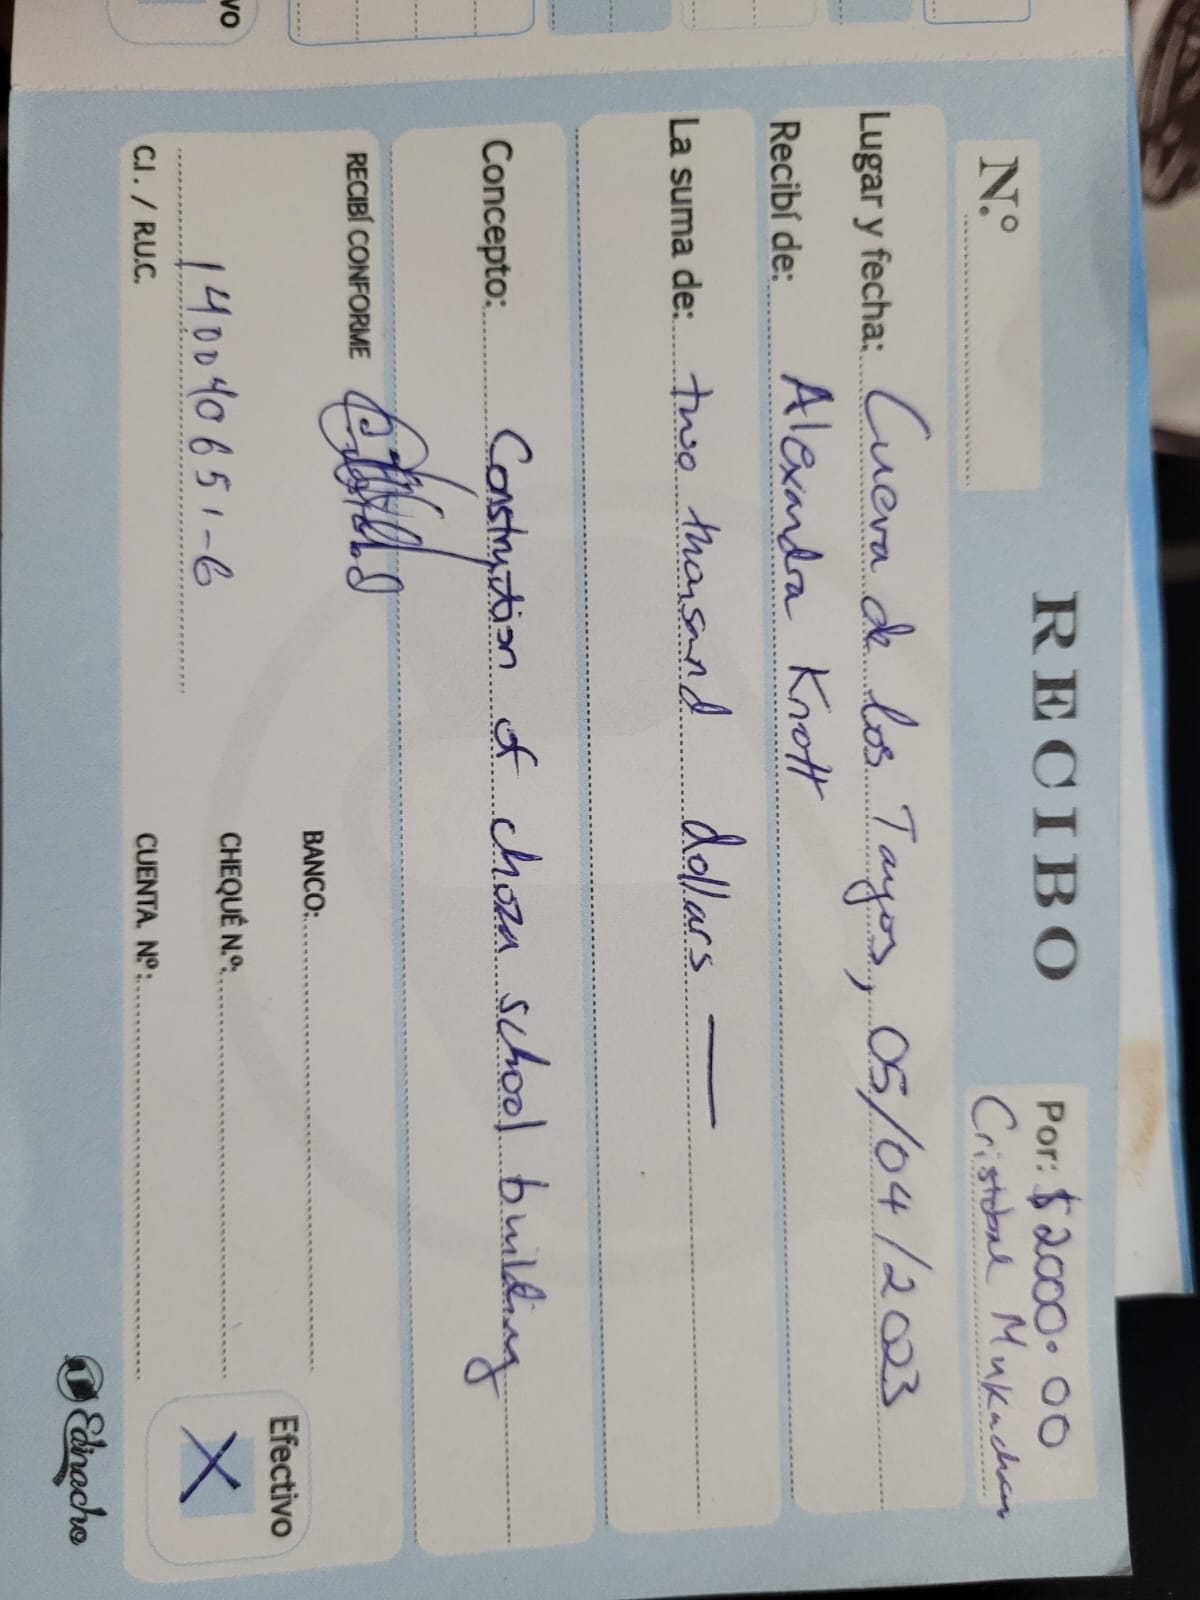 VO
N.º
RECIBO
Por: $2000.00
Cristobal Mukucham
Lugar y fecha: Cueva de los Tayos, 05/04/2023
Recibí de: Alexandra Knott
La suma de: two thousand dollars —
Concepto: Construction of choza school building
RECIBÍ CONFORME
140040651-6
C.I. / R.U.C.
BANCO:
CHEQUÉ N.º:
CUENTA Nº:
Efectivo
X
Edinacho